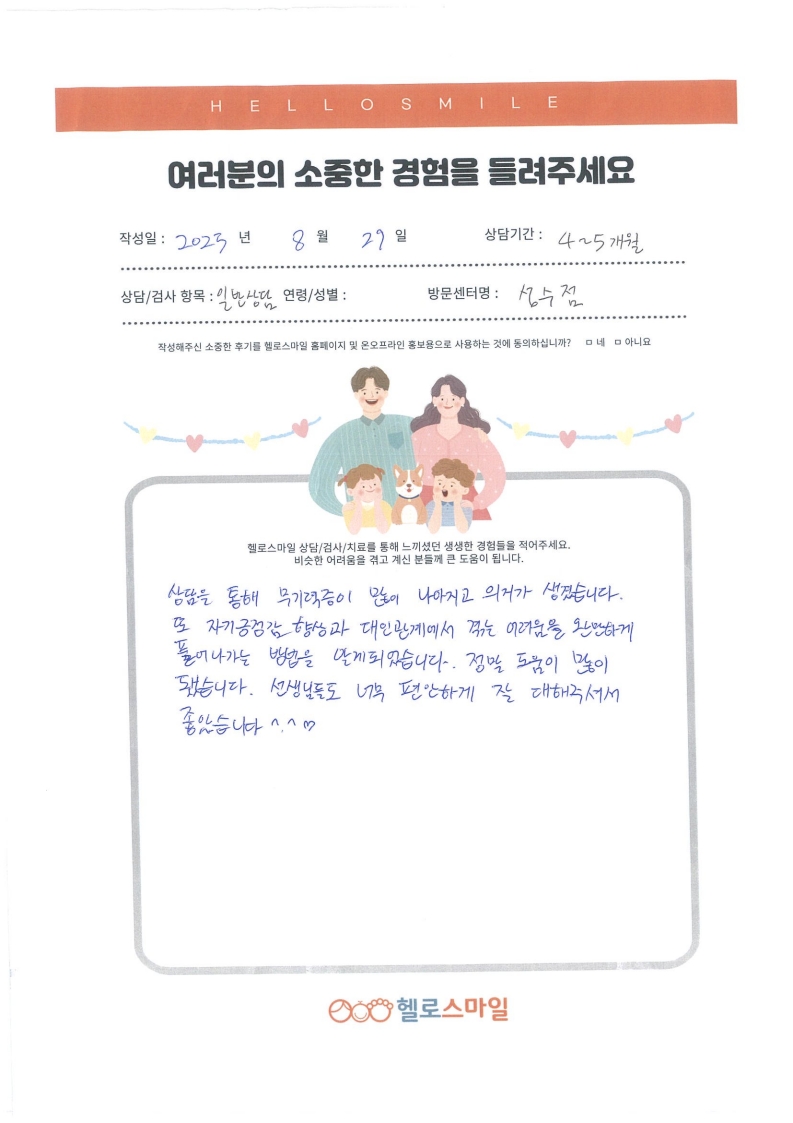 HELLOSMILE
여러분의 소중한 경험을 들려주세요
작성일 : 2023 년 8 월 29 일 상담기간 : 4~5개월
상담/검사 항목 : 일반상담 연령/성별 : 방문센터명 : 성수점
작성해주신 소중한 후기를 헬로스마일 홈페이지 및 온오프라인 홍보용으로 사용하는 것에 동의하십니까? ㅁ 네 ㅁ 아니요
헬로스마일 상담/검사/치료를 통해 느끼셨던 생생한 경험들을 적어주세요.
비슷한 어려움을 겪고 계신 분들께 큰 도움이 됩니다.
상담을 통해 무기력증이 많이 나아지고 의지가 생겼습니다.
또 자기긍정감 향상과 대인관계에서 겪는 어려움을 원만하게
풀어나가는 방법을 알게되었습니다. 정말 도움이 많이
됐습니다. 선생님들도 너무 편안하게 잘 대해주셔서
좋았습니다 ^.^ ♡
헬로스마일